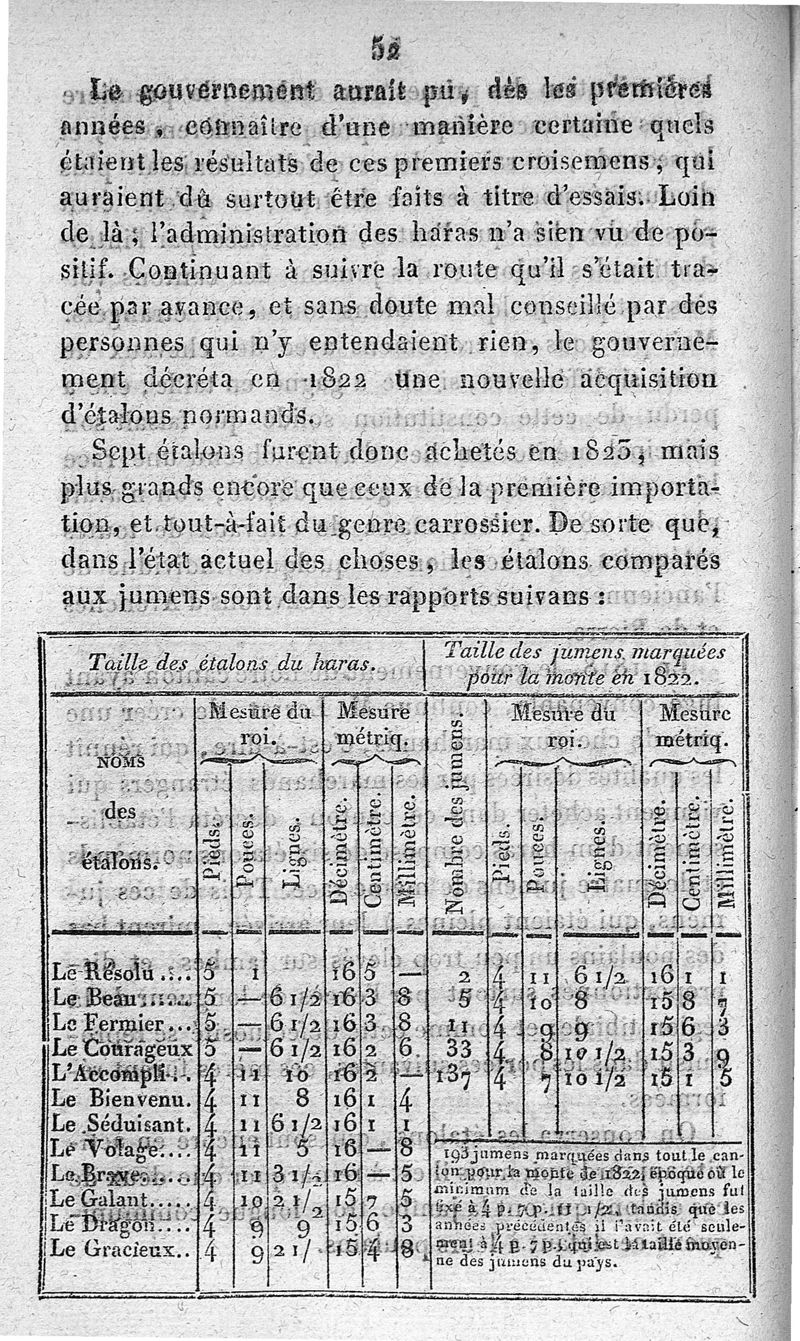 52
Le gouvernement aurait pu, dès les premières
années, connaître d'une manière certaine quels
étaient les résultats de ces premiers croisemens, qui
auraient dû surtout être faits à titre d'essais. Loin
de là; l'administration des haras n'a sien vu de po-
sitif. Continuant à suivre la route qu'il s'était tra-
cée par avance, et sans doute mal conseillé par des
personnes qui n'y entendaient rien, le gouverne-
ment décréta en 1822 une nouvelle acquisition
d'étalons normands.
Sept étalons furent donc achetés en 1823, mais
plus grands encore que ceux de la première importa-
tion, et tout-à-fait du genre carrossier. De sorte que,
dans l'état actuel des choses, les étalons comparés
aux jumens sont dans les rapports suivans :
Taille des étalons du haras.
Taille des jumens marquées
pour la monte en 1822.
NOMS
des
étalons.
Mesure du
roi.
Mesure
métriq.
Nombre des jumens.
Mesure du
roi.
Mesure
métriq.
Pieds. Pouces. Lignes. Décimètre. Centimètre. Millimètre.
Pieds. Pouces. Lignes. Décimètre. Centimètre. Millimètre.
Le Résolu.... 5 1 16 5 —
Le Beau...... 5 — 6 1/2 16 3 8
Le Fermier... 5 — 6 1/2 16 3 8
Le Courageux 5 — 6 1/2 16 2 6
L'Accompli.. 4 11 10 16 2 —
Le Bienvenu. 4 11 8 16 1 4
Le Séduisant. 4 11 6 1/2 16 1 1
Le Volage.... 4 11 5 16 — 8
Le Brave..... 4 11 3 1/2 16 — 5
Le Galant..... 4 10 2 1/2 15 7 5
Le Dragon.... 4 9 9 15 6 3
Le Gracieux.. 4 9 2 1/ 15 4 8
2 4 11 6 1/2 16 1 1
5 4 10 8 15 8 7
11 4 9 9 15 6 3
33 4 8 10 1/2 15 3 9
137 4 7 10 1/2 15 1 5
193 jumens marquées dans tout le can-
ton pour la monte de 1822, époque où le
minimum de la taille des jumens fut
fixé à 4 p. 7 p. 11 1/2, tandis que les
années précédentes il l'avait été seule-
ment à 4 p. 7 p. qui est la taille moyen-
ne des jumens du pays.